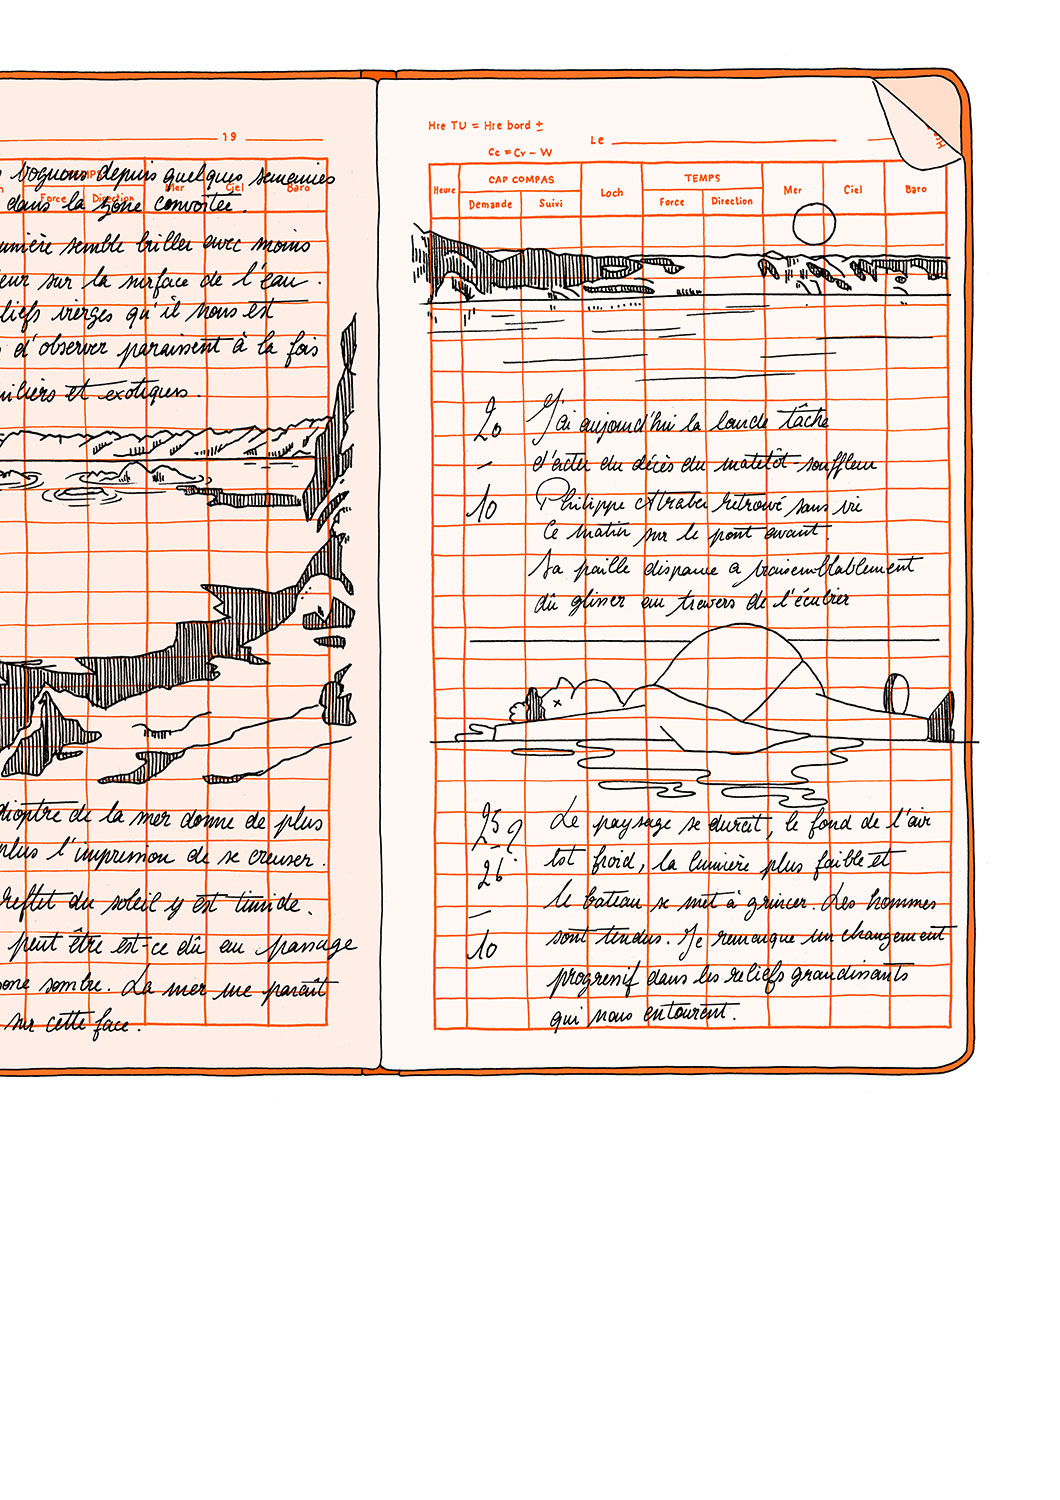 19
Mer Ciel Baro
Force Direction
voguons depuis quelques semaines
dans la zone convoitée.
lumière semble briller avec moins
sur la surface de l'eau.
vierges qu'il nous est
d'observer paraissent à la fois
et exotiques.
dioptre de la mer donne de plus
plus l'impression de se creuser.
reflet du soleil y est timide.
peut être est-ce dû au passage
sombre. La mer me paraît
sur cette face.
Hre TU = Hre bord ±
Cc = Cv - W
Le
Heure CAP COMPAS Loch TEMPS Mer Ciel Baro
Demande Suivi Force Direction
20 J'ai aujourd'hui la lourde tâche
- d'acter du décès du matelôt-souffleur
10 Philippe retrouvé sans vie
ce matin sur le pont avant.
Sa paille disparue a vraisemblablement
dû glisser au travers de l'écubier
25 ? Le paysage se durcit, le fond de l'air
26 est froid, la lumière plus faible et
le bateau se met à grincer. Les hommes
- sont tendus. Je remarque un changement
10 progressif dans les reliefs grandissants
qui nous entourent.